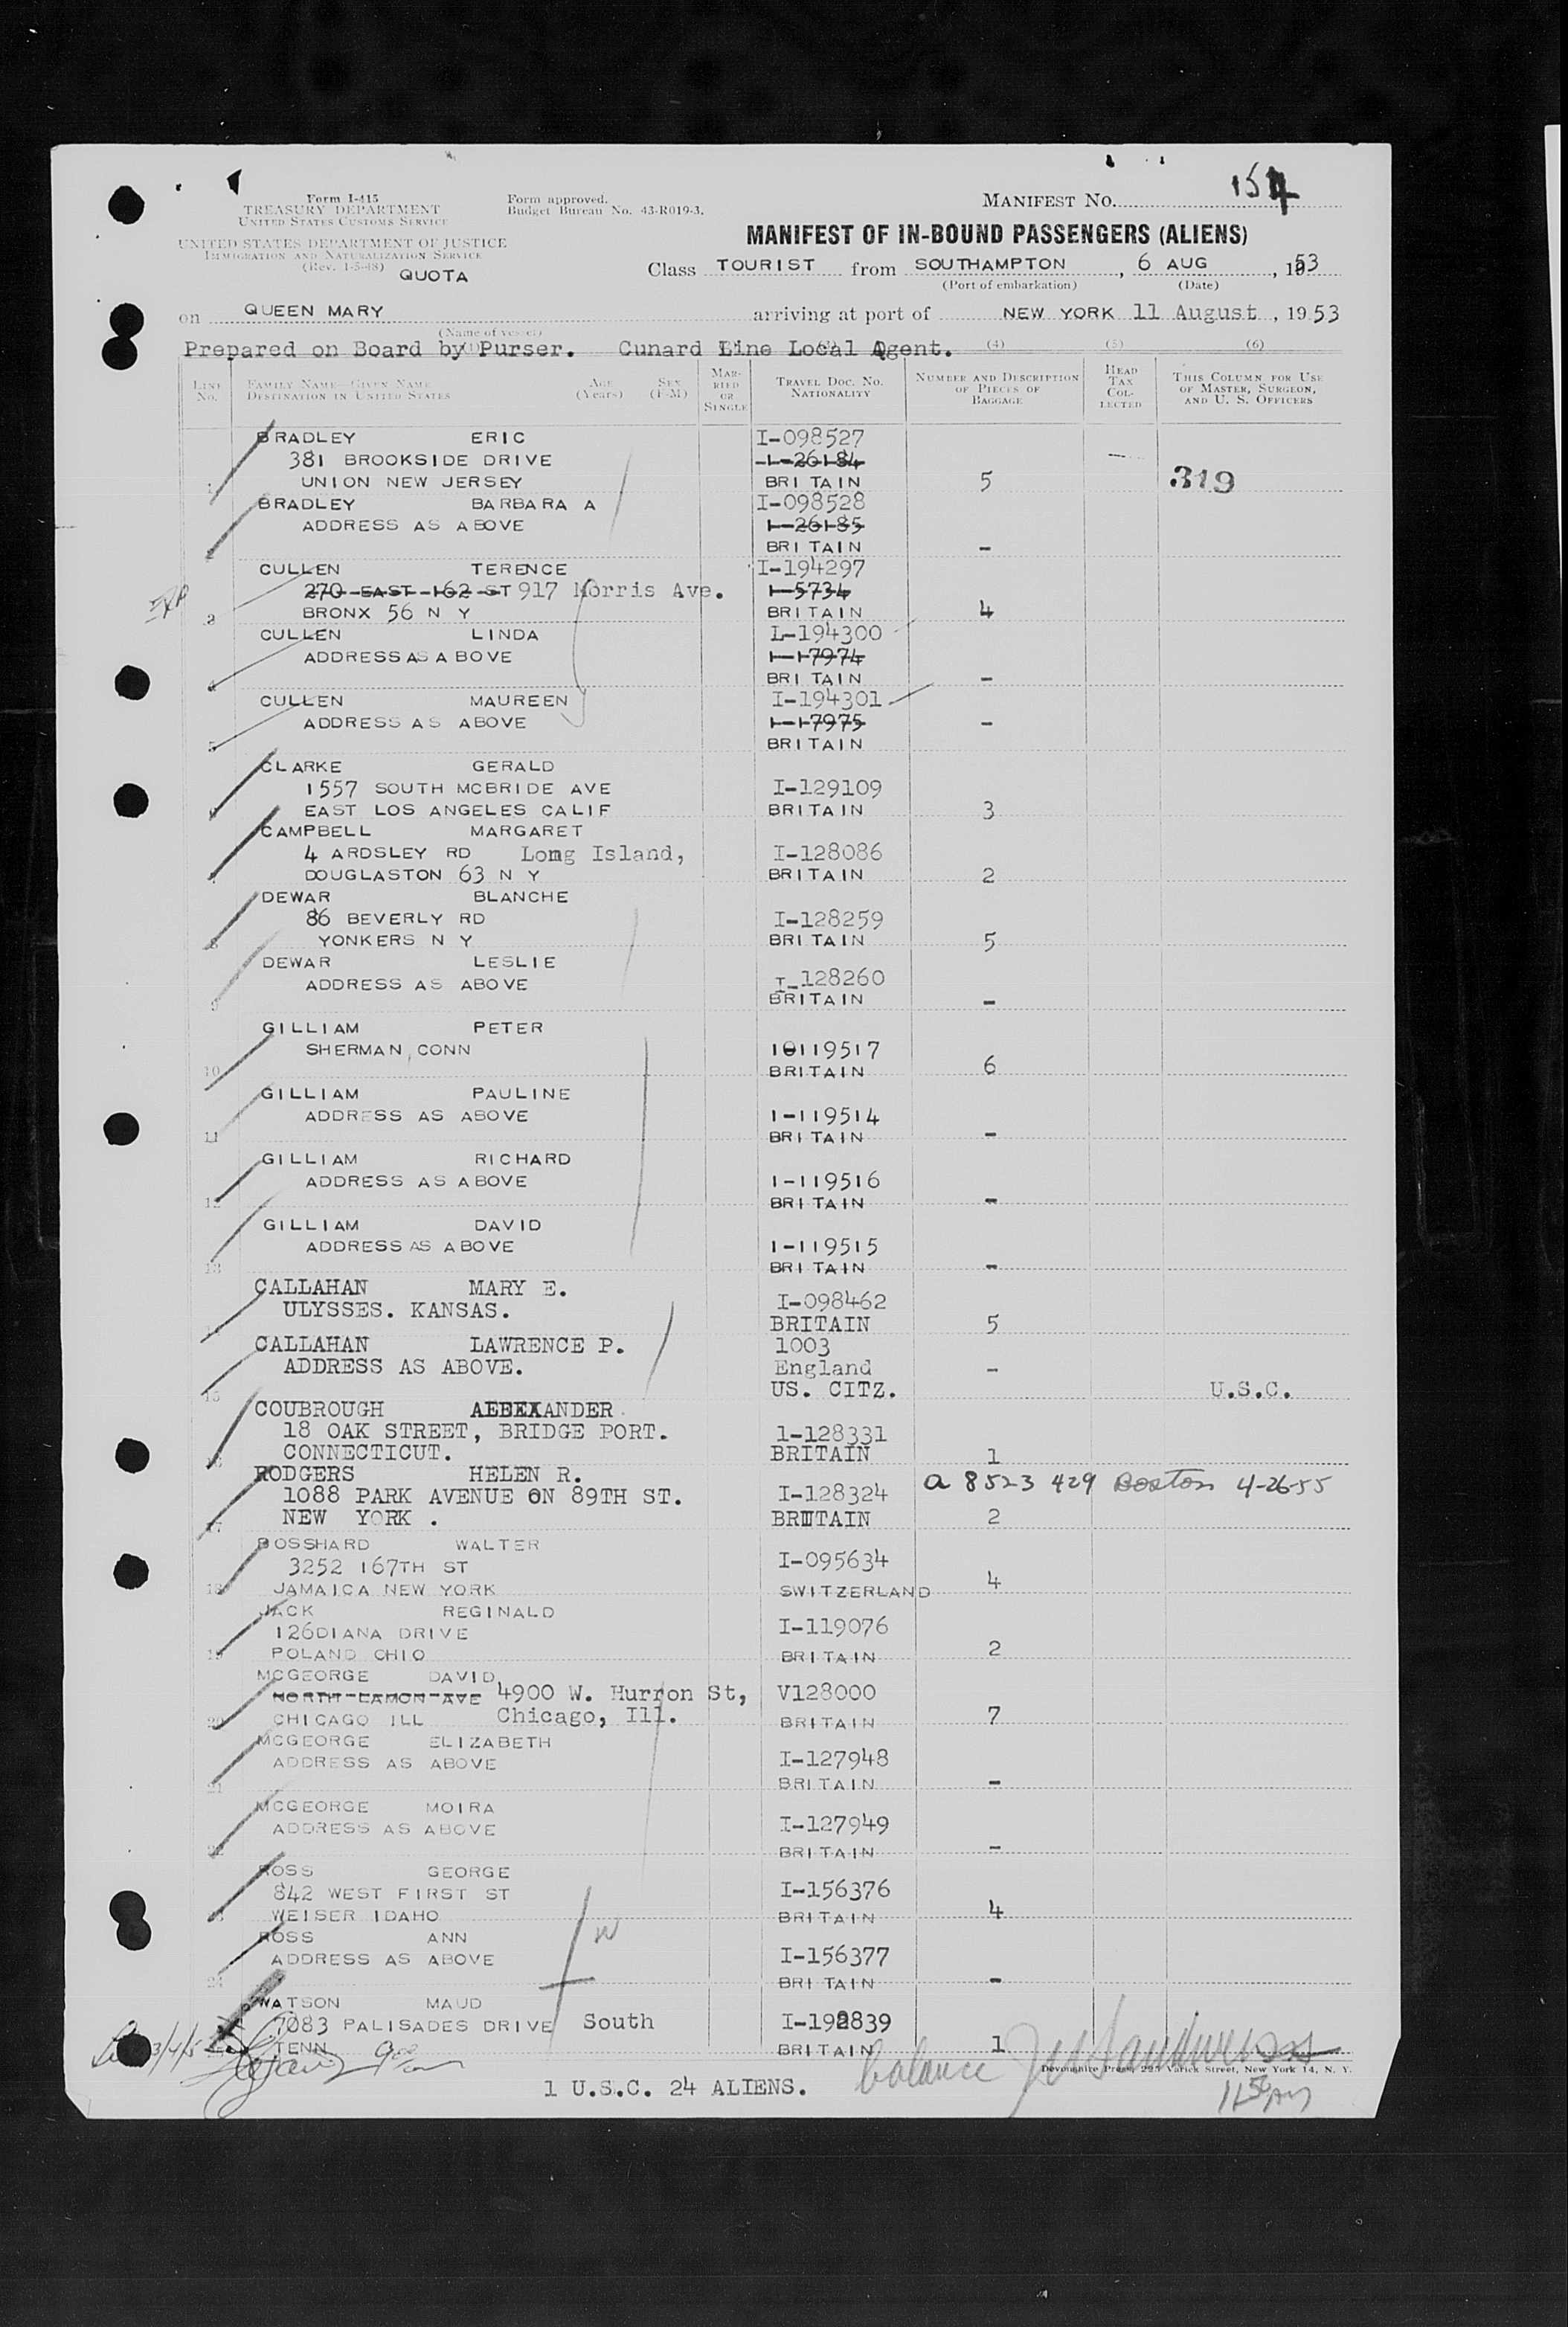 154
Form I-415
TREASURY DEPARTMENT
UNITED STATES CUSTOMS SERVICE
Form approved.
Budget Bureau No. 43-R019-3.
MANIFEST NO.
UNITED STATES DEPARTMENT OF JUSTICE
IMMIGRATION AND NATURALIZATION SERVICE
(Rev. 1-5-48)
QUOTA
MANIFEST OF IN-BOUND PASSENGERS (ALIENS)
Class TOURIST from SOUTHAMPTON, 6 AUG, 1953
(Port of embarkation) (Date)
on QUEEN MARY arriving at port of NEW YORK 11 August, 1953
(Name of vessel)
Prepared on Board by Purser. Cunard Line Local Agent. (4) (5) (6)
LINE No. FAMILY NAME—GIVEN NAME DESTINATION IN UNITED STATES AGE (Years) SEX (F-M) MARRIED OR SINGLE TRAVEL DOC. NO. NATIONALITY NUMBER AND DESCRIPTION OF PIECES OF BAGGAGE HEAD TAX COLLECTED THIS COLUMN FOR USE OF MASTER, SURGEON, AND U. S. OFFICERS
BRADLEY ERIC I-098527
381 BROOKSIDE DRIVE I-26184
1 UNION NEW JERSEY BRITAIN 5 319
BRADLEY BARBARA A I-098528
ADDRESS AS ABOVE I-26185
2 BRITAIN -
CULLEN TERENCE I-194297
270 EAST 162 ST 917 Morris Ave. I-5734
3 BRONX 56 N Y BRITAIN 4
CULLEN LINDA I-194300
ADDRESS AS ABOVE I-17974
4 BRITAIN -
CULLEN MAUREEN I-194301
ADDRESS AS ABOVE I-17975 -
5 BRITAIN
CLARKE GERALD
1557 SOUTH MCBRIDE AVE I-129109
6 EAST LOS ANGELES CALIF BRITAIN 3
CAMPBELL MARGARET
4 ARDSLEY RD Long Island, I-128086
7 DOUGLASTON 63 N Y BRITAIN 2
DEWAR BLANCHE
86 BEVERLY RD I-128259
8 YONKERS N Y BRITAIN 5
DEWAR LESLIE
ADDRESS AS ABOVE I-128260
9 BRITAIN -
GILLIAM PETER
SHERMAN, CONN 10119517
10 BRITAIN 6
GILLIAM PAULINE
ADDRESS AS ABOVE 1-119514
11 BRITAIN -
GILLIAM RICHARD
ADDRESS AS ABOVE 1-119516
12 BRITAIN -
GILLIAM DAVID
ADDRESS AS ABOVE 1-119515
13 BRITAIN -
CALLAHAN MARY E.
ULYSSES. KANSAS. I-098462
14 BRITAIN 5
CALLAHAN LAWRENCE P. 1003
ADDRESS AS ABOVE. England -
15 US. CITZ. U.S.C.
COUBROUGH ALEXANDER
18 OAK STREET, BRIDGE PORT. 1-128331
16 CONNECTICUT. BRITAIN 1
RODGERS HELEN R. a 8523 429 Boston 4-26-55
1088 PARK AVENUE ON 89TH ST. I-128324
17 NEW YORK . BRITAIN 2
BOSSHARD WALTER
3252 167TH ST I-095634
18 JAMAICA NEW YORK SWITZERLAND 4
JACK REGINALD
126DIANA DRIVE I-119076
19 POLAND OHIO BRITAIN 2
MCGEORGE DAVID
NORTH LAMON AVE 4900 W. Hurron St, V128000
20 CHICAGO ILL Chicago, Ill. BRITAIN 7
MCGEORGE ELIZABETH
ADDRESS AS ABOVE I-127948
21 BRITAIN -
MCGEORGE MOIRA
ADDRESS AS ABOVE I-127949
22 BRITAIN -
ROSS GEORGE
842 WEST FIRST ST I-156376
23 WEISER IDAHO BRITAIN 4
ROSS ANN W
ADDRESS AS ABOVE I-156377
24 BRITAIN -
WATSON MAUD
7083 PALISADES DRIVE South I-192839
TENN BRITAIN 1
balance
Devonshire Press, 225 Varick Street, New York 14, N. Y.
1 U.S.C. 24 ALIENS.